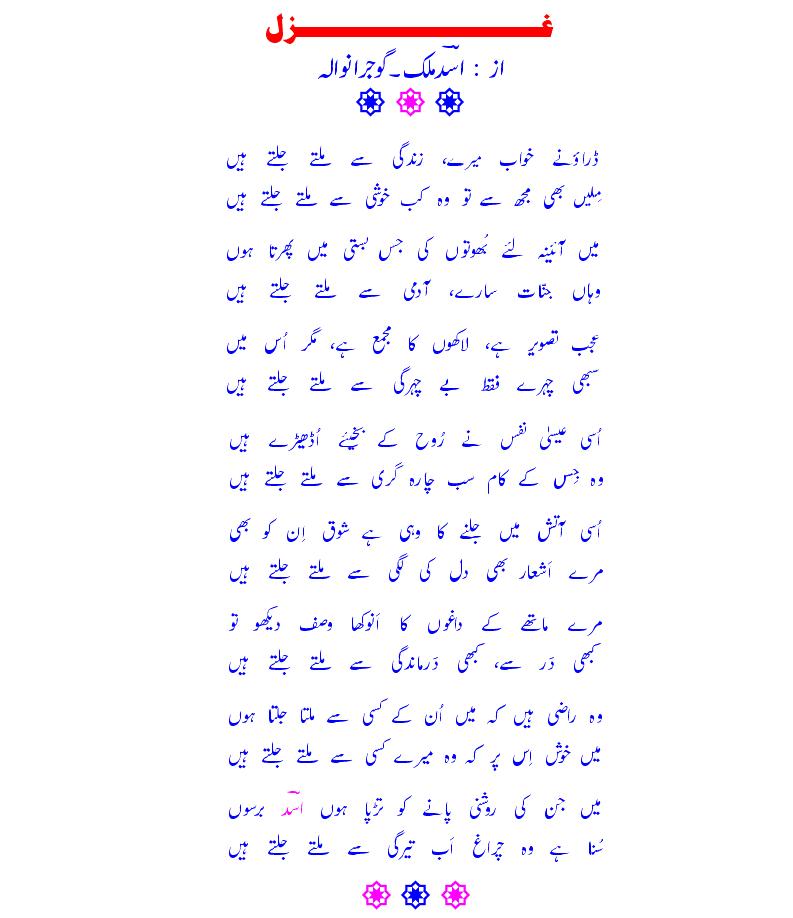 غزل
از : اسدؔ ملک۔ گوجرانوالہ
ڈراؤنے خواب میرے، زندگی سے ملتے جلتے ہیں
مِلیں بھی مجھ سے تو وہ کب خوشی سے ملتے جلتے ہیں
میں آئینہ لئے بُھوتوں کی جس بستی میں پھرتا ہوں
وہاں جنّات سارے، آدمی سے ملتے جلتے ہیں
عجب تصویر ہے، لاکھوں کا مجمع ہے، مگر اُس میں
سبھی چہرے فقط بے چہرگی سے ملتے جلتے ہیں
اُسی عیسیٰ نفس نے رُوح کے بخیئے اُدھیڑے ہیں
وہ جِس کے کام سب چارہ گری سے ملتے جلتے ہیں
اُسی آتش میں جلنے کا وہی ہے شوق اِن کو بھی
مرے اَشعار بھی دل کی لگی سے ملتے جلتے ہیں
مرے ماتھے کے داغوں کا اَنوکھا وصف دیکھو تو
کبھی دَر سے، کبھی دَرماندگی سے ملتے جلتے ہیں
وہ راضی ہیں کہ میں اُن کے کسی سے ملتا جلتا ہوں
میں خوش اِس پر کہ وہ میرے کسی سے ملتے جلتے ہیں
میں جن کی روشنی پانے کو تڑپا ہوں اسدؔ برسوں
سُنا ہے وہ چراغ اَب تیرگی سے ملتے جلتے ہیں